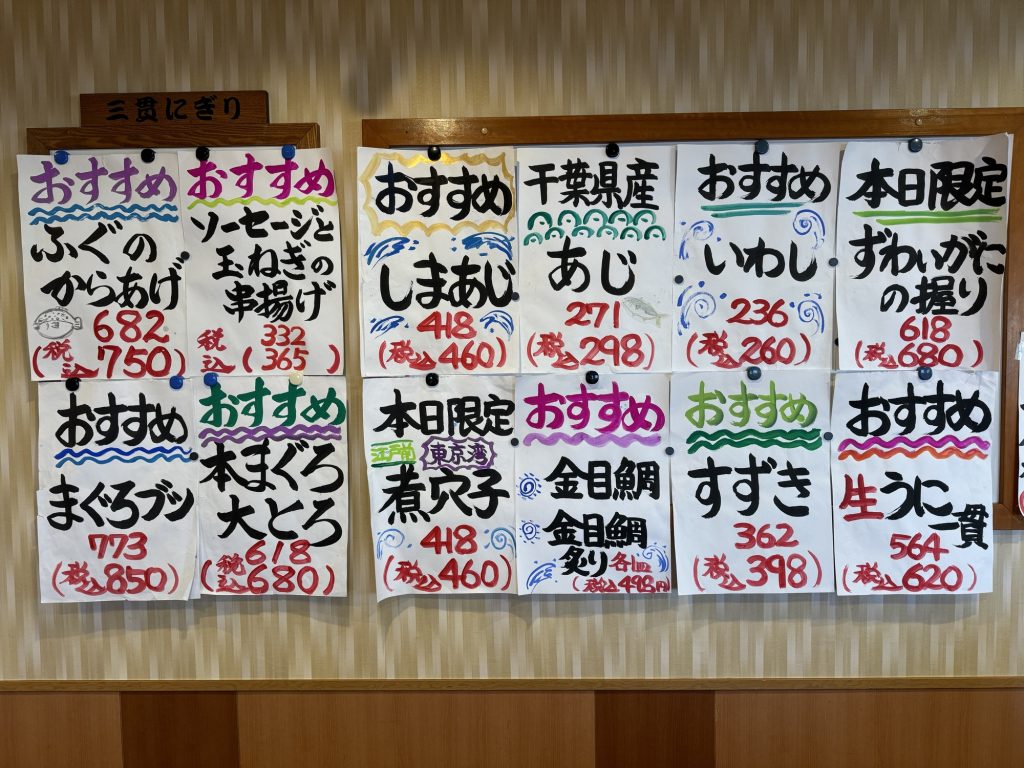 三貫にぎり
おすすめ
ふぐの
からあげ
682
(税込750)
おすすめ
ソーセージと
玉ねぎの
串揚げ
332
税込(365)
おすすめ
しまあじ
418
(税込460)
千葉県産
あじ
271
(税込298)
おすすめ
いわし
236
(税込260)
本日限定
ずわいがに
の握り
618
(税込680)
おすすめ
まぐろブツ
773
(税込850)
おすすめ
本まぐろ
大とろ
618
(税込680)
本日限定
江戸前 東京湾
煮穴子
418
(税込460)
おすすめ
金目鯛
金目鯛
炙り 各1皿
(税込498円)
おすすめ
すずき
362
(税込398)
おすすめ
生うに
一貫
564
(税込620)